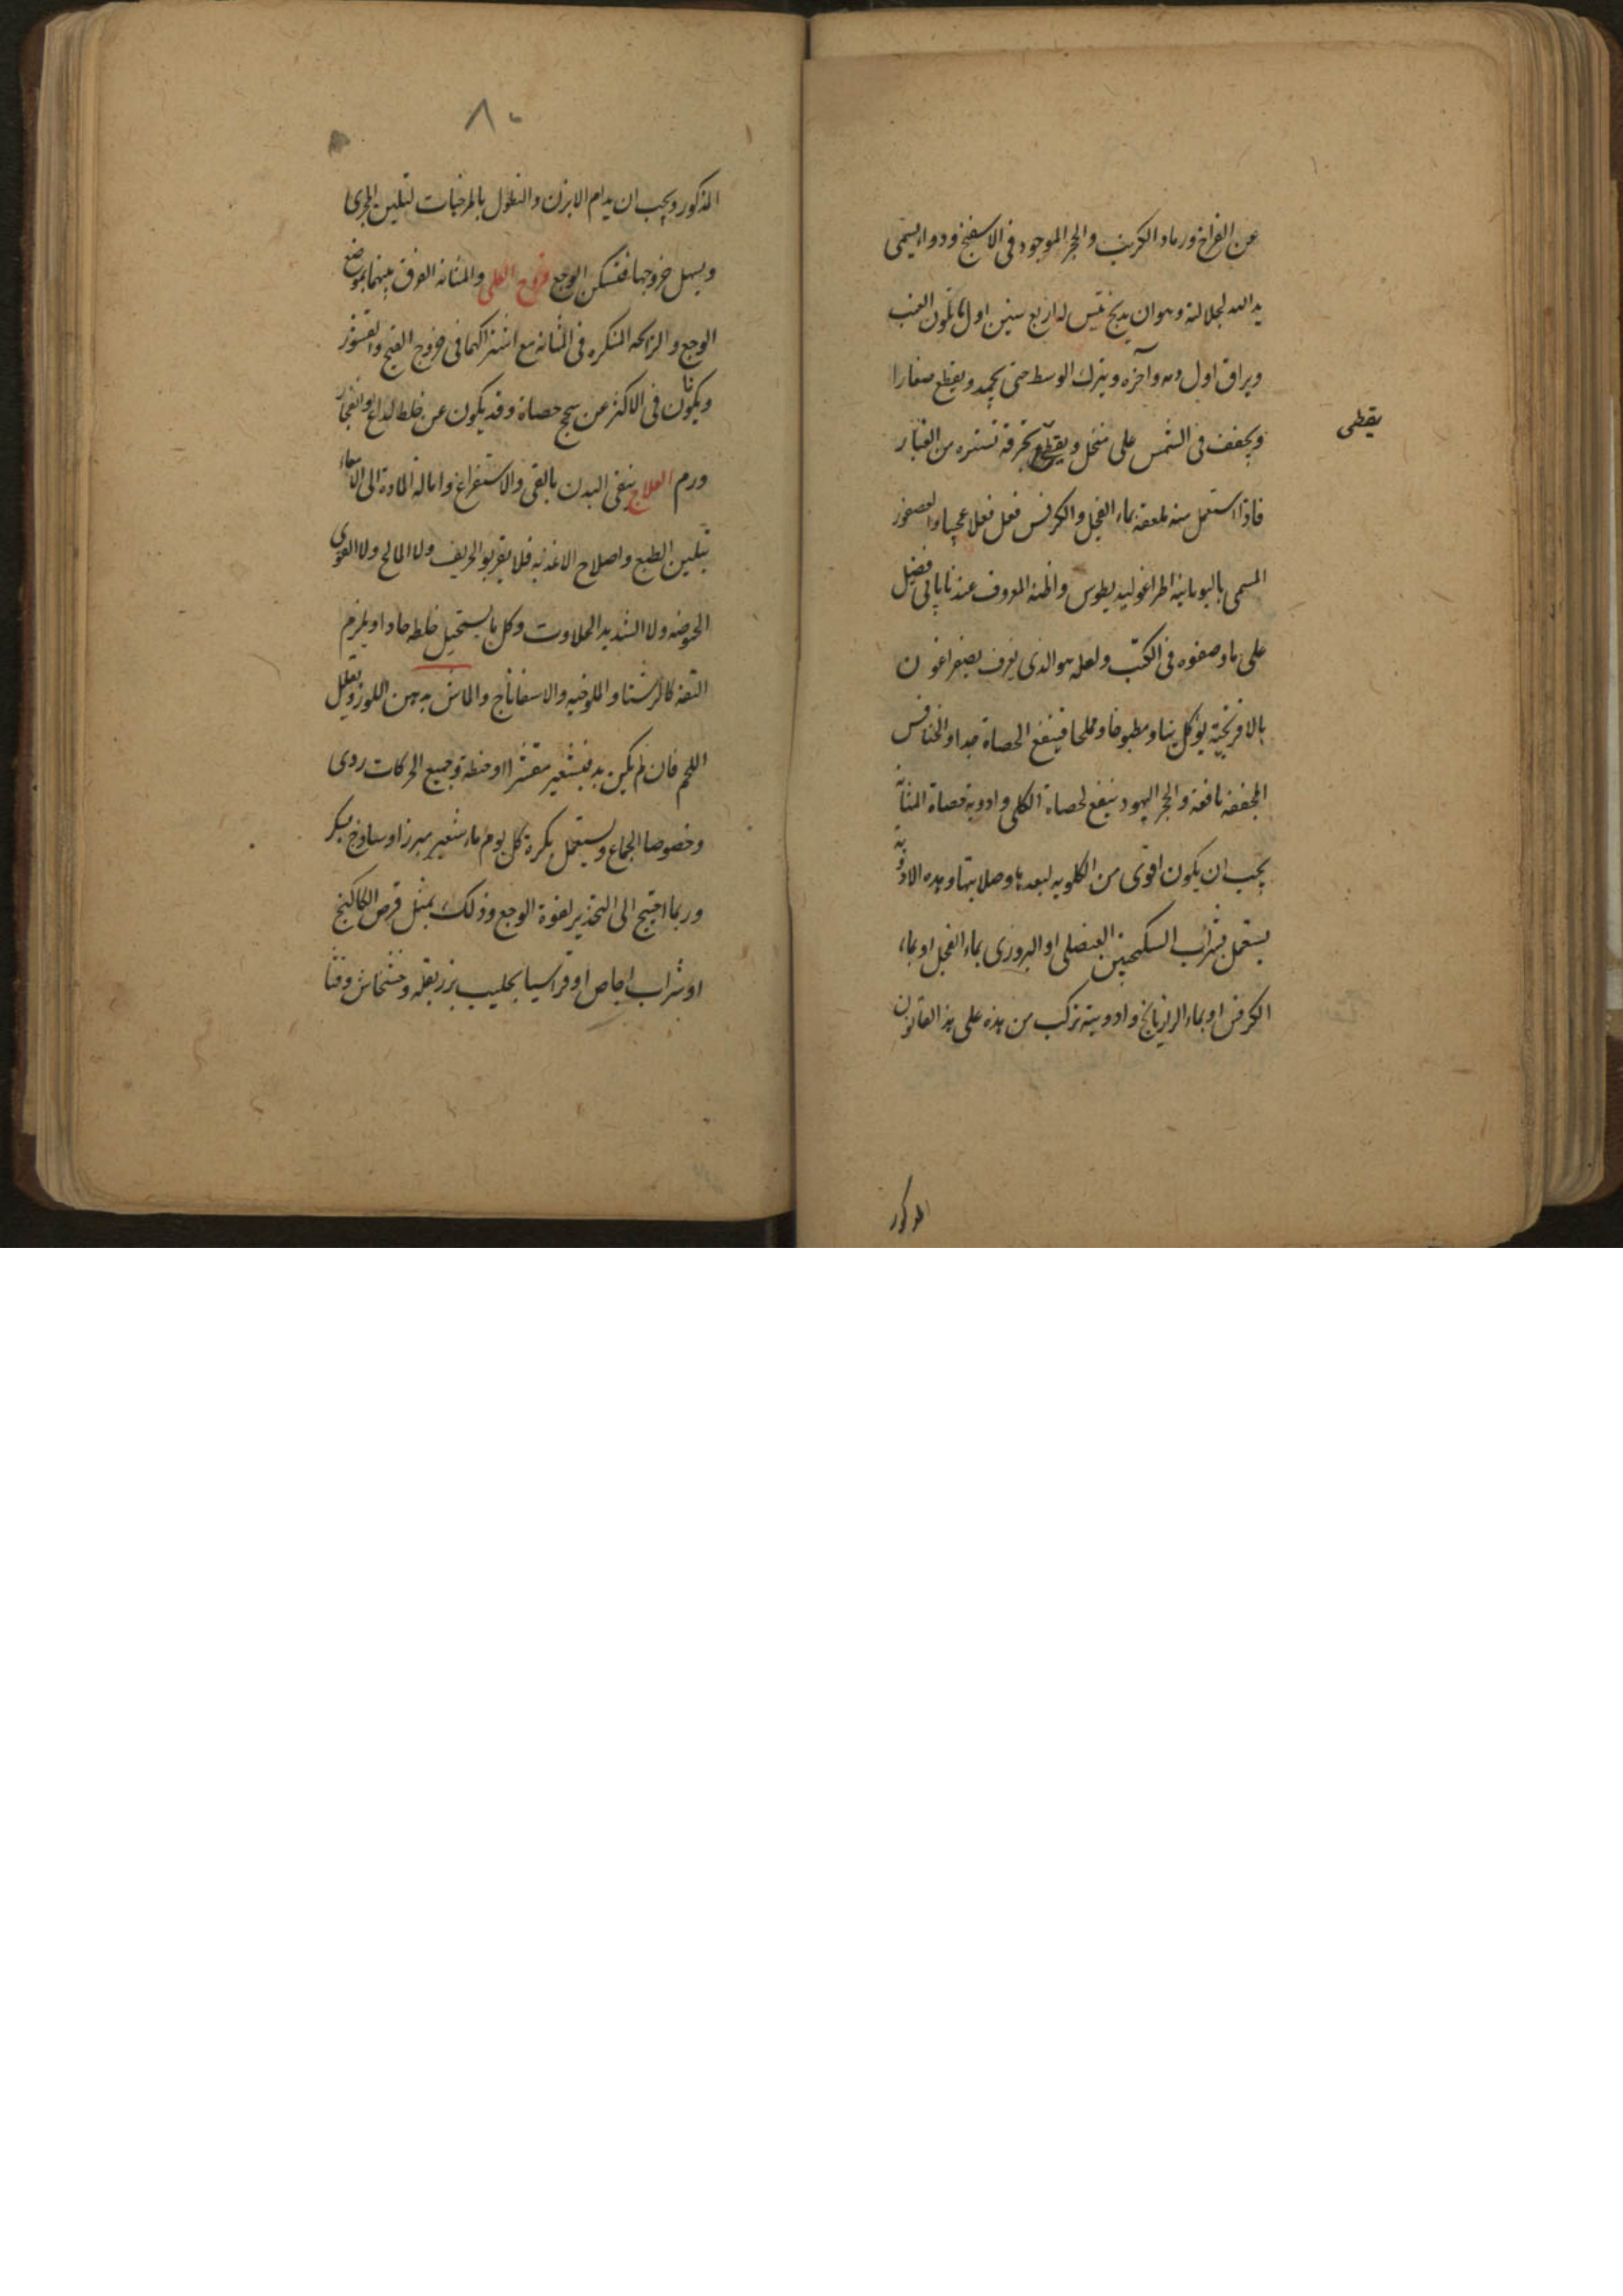 عن الفراخ ورماد الكرنب والحجر الموجود فى الاسفنج ودواء يسمى
يد الله لجلالته وهو ان يذبح تيس له اربع سنين اول ما تلون العنب
ويراق اول دمه وآخره ويترك الوسط حتى يجمد ويقطع صغارا
ويجفف فى الشمس على منخل ويقطع بخرقة تستره من الغبار
يغطى
فاذا استعمل منه ملعقة بماء الفجل والكرفس فعل فعلا عجيبا والعصفور
المسمى باليونانية اطراغوليديطوس واظنه المعروف عندنا بابى فضيل
على ما وصفوه فى الكتب ولعله هو الذى يعرف بصفراغون
بالافرنجية يؤكل نيا ومطبوخا ومملحا فينفع الحصاة جدا والخنافس
المجففة نافعة والحجر اليهود ينفع لحصاة الكلى وادوية حصاة المثانة
يجب ان يكون اقوى من الكلوية لبعدها وصلابتها وهذه الادوية
يستعمل بشراب السكنجبين العنصلى او البزورى بماء الفجل او بماء
الكرفس او بماء الرازيانج وادوية تركب من هذه على هذ القانون
المذكور
٨٠
المذكور ويجب ان يدام الابزن والنطول بالمرخيات لتليين المجرى
ويسهل خروجها فتسكن الوجع قروح الكلى والمثانة الفرق بينهما بموضع
الوجع والرائحه المنكره فى المثانة مع اشتراكهما فى خروج القيح والقشور
ويكونان فى الاكثر عن سحج حصاة وقد يكون عن خلط لداع او انفجار
ورم العلاج ينقى البدن بالقى والاستفراغ وامالة المادة الى الامعاء
بتليين الطبع واصلاح الاغذيه فلا يقربو الحريف ولا المالح ولا القوى
الحموضه ولا الشديد الحلاوت وكل ما يستحيل خلطه حادا ويلزم
التفه كالرشتا والملوخيه والاسفاناج والماش بدهن اللوز ويقلل
اللحم فان لم يكن بد فبشعير مقشرا او حنطة وجميع الحركات ردى
وخصوصا الجماع ويستعمل بكرة كل يوم ماء شعير مبرز او ساذج بسكر
وربما احتيج الى التخذير لقوة الوجع وذلك بمثل قرص الكاكنج
او شراب اجاص او قراسيا بحليب بزر بقله وخشخاش وقثا